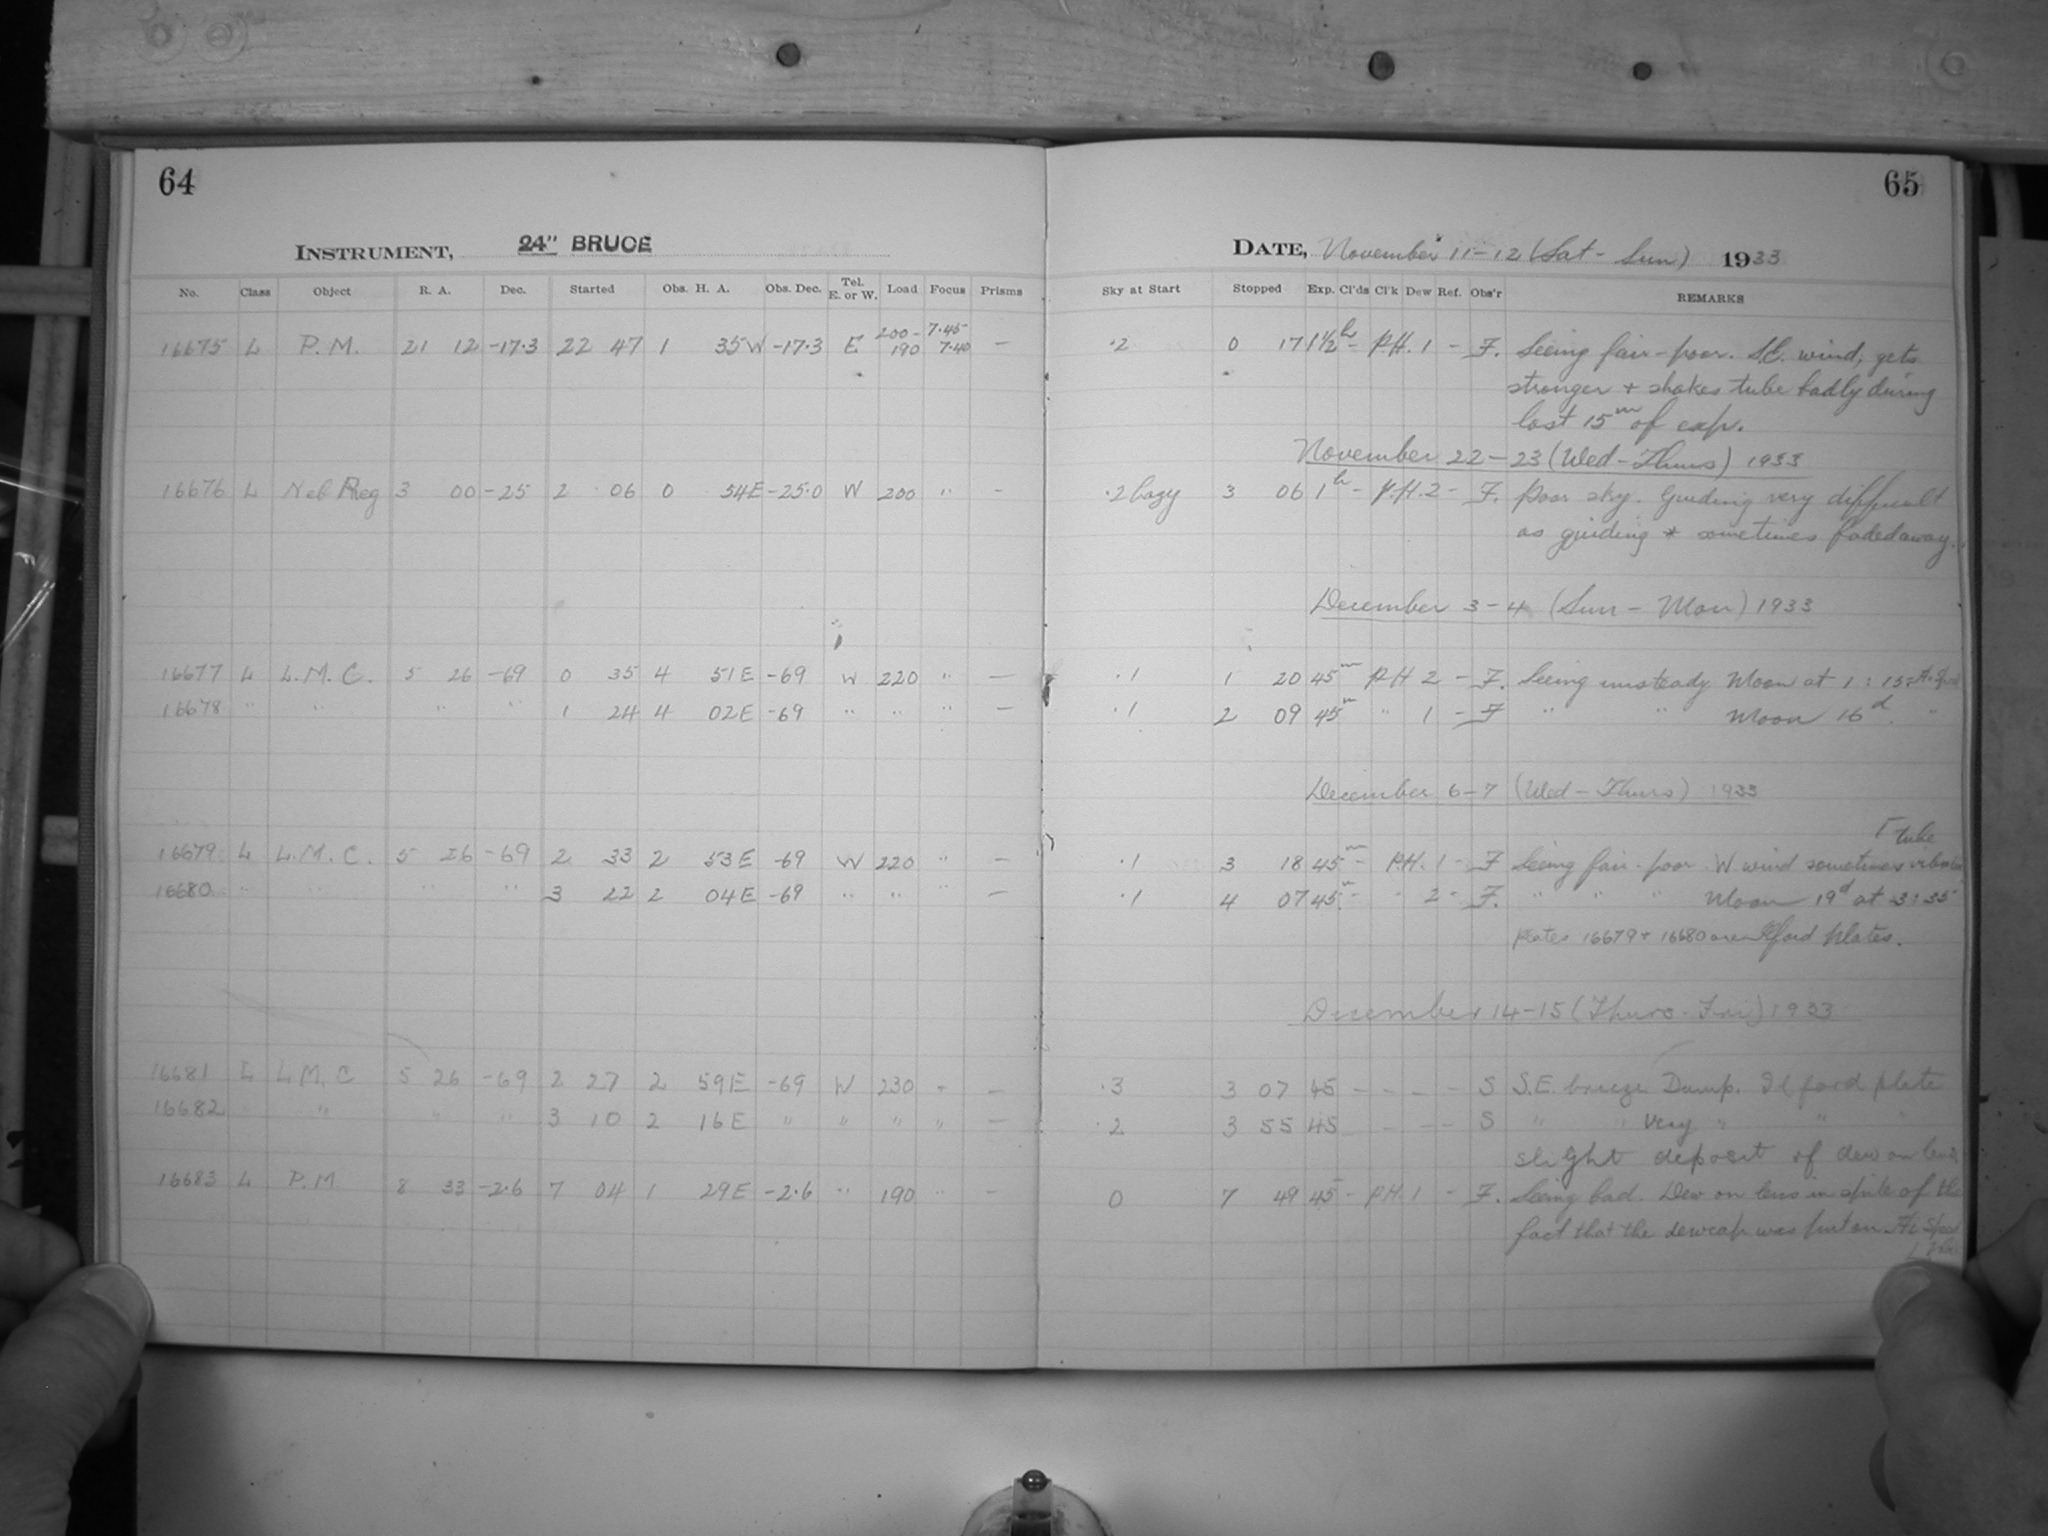 64
INSTRUMENT, 24" BRUCE
No. Class Object R. A. Dec. Started Obs. H. A. Obs. Dec. Tel. E. or W. Load Focus Prisms
16675 L P.M. 21 12 -17.3 22 47 1 35 W -17.3 E 200-190 7.45 7.40 —
16676 L Neb Reg 3 00 -25 2 06 0 54E -25.0 W 200 " -
16677 L L.M.C. 5 26 -69 0 35 4 51E -69 W 220 " —
16678 " " " " 1 24 4 02E -69 " " " —
16679 L L.M.C. 5 26 -69 2 33 2 53E -69 W 220 " —
16680 " " " " 3 22 2 04E -69 " " " —
16681 L L.M.C 5 26 -69 2 27 2 59E -69 W 230 —
16682 " " " 3 10 2 16E " " " " —
16683 L P.M 8 33 -2.6 7 04 1 29E -2.6 " 190 " —
65
DATE, November 11-12 (Sat - Sun) 1933
Sky at Start Stopped Exp. Cl'ds Cl'k Dew Ref. Obs'r REMARKS
.2 0 17 1½h - P.H. 1 - F. Seeing fair-poor. S.E. wind, gets
stronger + shakes tube badly during
last 15m of exp.
November 22-23 (Wed-Thurs) 1933
.2 hazy 3 06 1h - P.H. 2 - F. Poor sky. Guiding very difficult
as guiding * sometimes faded away.
December 3-4 (Sun - Mon) 1933
.1 1 20 45m P.H 2 - F. Seeing unsteady Moon at 1:15
.1 2 09 45m " 1 - F " " Moon 16d. "
December 6-7 (Wed-Thurs) 1933
tube
.1 3 18 45m - P.H. 1 - F Seeing fair-poor. W wind sometimes
.1 4 07 45m - " 2 - F. " " " Moon 19d at 3:35
Plates 16679 + 16680 are Ilford plates.
December 14-15 (Thurs-Fri) 1933
.3 3 07 45 - - - - S S.E. breeze Damp. Ilford plate
.2 3 55 45 - - - - S " " very " " "
slight deposit of dew on lens
0 7 49 45 - P.H. 1 - F. Seeing bad. Dew on lens in spite of the
fact that the dewcap was put on.